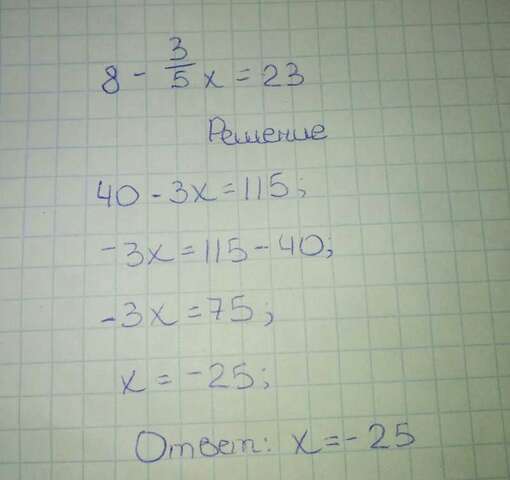 8 - 3/5 x = 23
Решение
40 - 3x = 115;
-3x = 115 - 40;
-3x = 75;
x = -25;
Ответ: x = -25